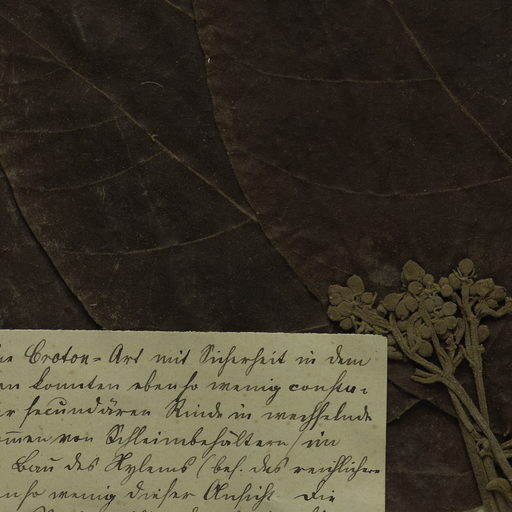 ne Croton-Art mit Sicherheit in dem
en konnten ebenso wenig consta-
er secundären Rinde in wechselnde
ommen von Schleimbehältern/im
Bau des Xylems (bes. des reichlichen
enso wenig dieser Ansicht. Die